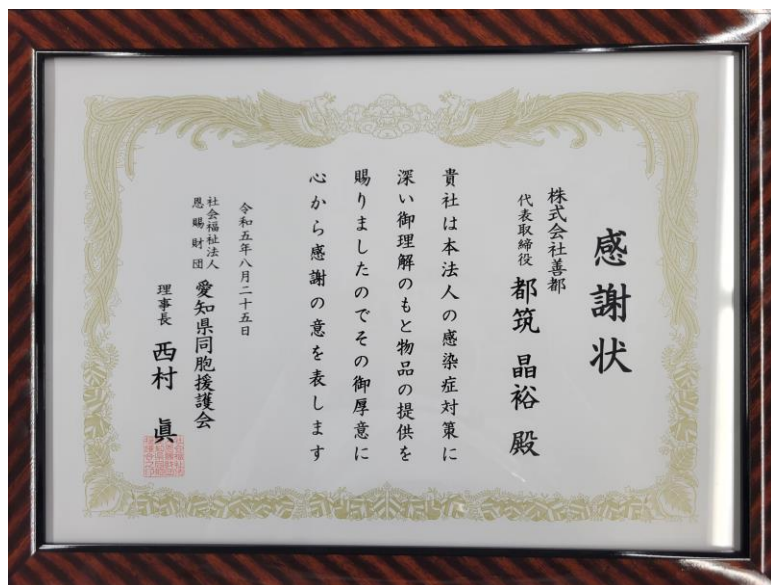 感謝状
株式会社善都
代表取締役 都筑 晶裕 殿
貴社は本法人の感染症対策に
深い御理解のもと物品の提供を
賜りましたのでその御厚意に
心から感謝の意を表します
令和五年八月二十五日
社会福祉法人
恩賜財団
愛知県同胞援護会
理事長 西村 眞